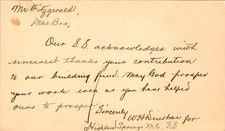 Mr Fitzgerald,
Dear Bro,
Our SS acknowledges with
sincerest thanks your contribution
to our building fund. May God prosper
your work even as you has helped
ours to prosper
Sincerely
for
Highland Springs M.E. SS